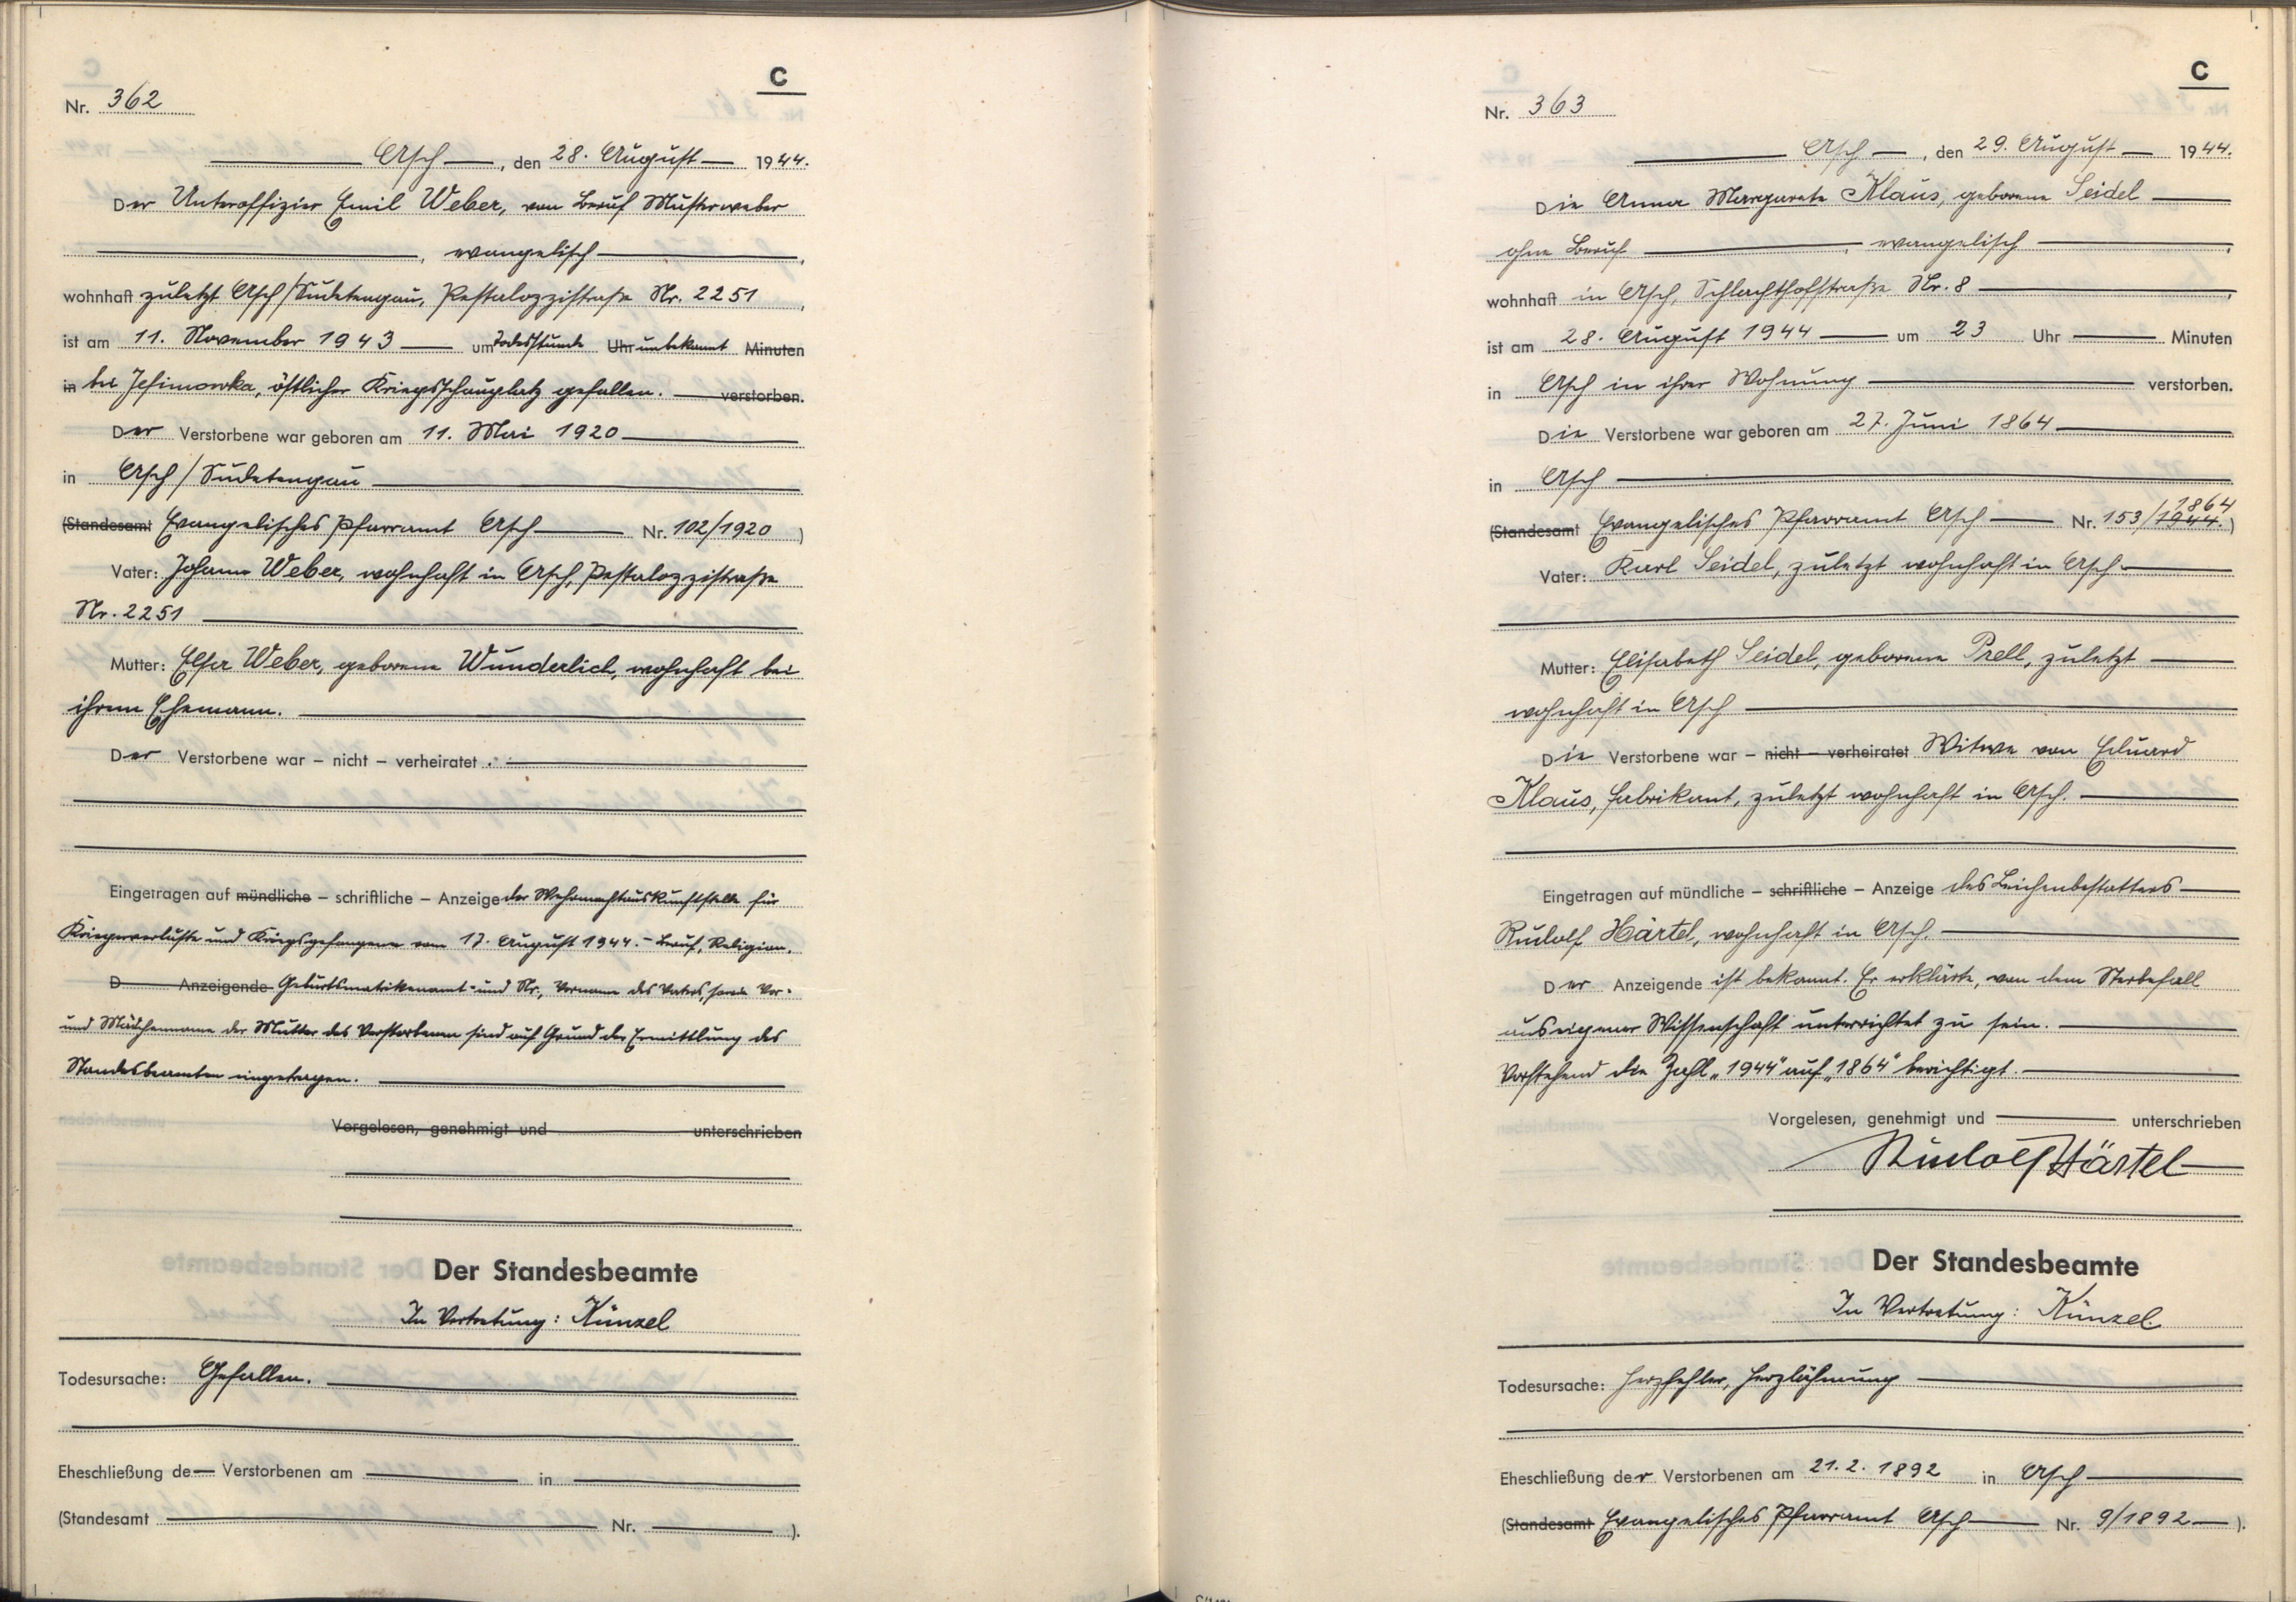 C
Nr. 362
Asch, den 28. August 1944.
Der Unteroffizier Emil Weber, von Beruf Musterweber
, evangelisch,
wohnhaft zuletzt Asch/Sudetengau, Pestalozzistraße Nr. 2251,
ist am 11. November 1943 um Todesstunde Uhr unbekannt Minuten
in bei Jefimowka, östlicher Kriegsschauplatz gefallen. verstorben.
Der Verstorbene war geboren am 11. Mai 1920
in Asch/Sudetengau
(Standesamt Evangelisches Pfarramt Asch Nr. 102/1920)
Vater: Johann Weber, wohnhaft in Asch, Pestalozzistraße
Nr. 2251
Mutter: Elsa Weber, geborene Wunderlich, wohnhaft bei
ihrem Ehemann.
Der Verstorbene war – nicht – verheiratet.
Eingetragen auf mündliche – schriftliche – Anzeige der Wehrmachtauskunftstelle für
Kriegerverluste und Kriegsgefangene vom 17. August 1944. – Beruf, Religion,
D Anzeigende Geburtsmatrikenamt- und Nr., Vorname des Vaters, sowie Vor-
und Mädchenname der Mutter des Verstorbenen sind auf Grund der Ermittlung des
Standesbeamten eingetragen.
Vorgelesen, genehmigt und unterschrieben
Der Standesbeamte
In Vertretung: Künzel
Todesursache: Gefallen.
Eheschließung de Verstorbenen am in
(Standesamt Nr. ).
C
Nr. 363
Asch, den 29. August 1944.
Die Anna Margarete Klaus, geborene Seidel
ohne Beruf, evangelisch,
wohnhaft in Asch, Schlachthofstraße Nr. 8,
ist am 28. August 1944 um 23 Uhr Minuten
in Asch in ihrer Wohnung verstorben.
Die Verstorbene war geboren am 27. Juni 1864
in Asch
1864
(Standesamt Evangelisches Pfarramt Asch Nr. 153/1944.)
Vater: Karl Seidel, zuletzt wohnhaft in Asch.
Mutter: Elisabeth Seidel, geborene Prell, zuletzt
wohnhaft in Asch
Die Verstorbene war – nicht – verheiratet Witwe von Eduard
Klaus, Fabrikant, zuletzt wohnhaft in Asch.
Eingetragen auf mündliche – schriftliche – Anzeige des Leichenbestatters
Rudolf Härtel, wohnhaft in Asch.
Der Anzeigende ist bekannt. Er erklärte, von dem Sterbefall
aus eigener Wissenschaft unterrichtet zu sein.
Vorstehend die Zahl „1944" auf „1864" berichtigt.
Vorgelesen, genehmigt und unterschrieben
Rudolf Härtel
Der Standesbeamte
In Vertretung: Künzel
Todesursache: Herzfehler, Herzlähmung
Eheschließung der Verstorbenen am 21. 2. 1892 in Asch
(Standesamt Evangelisches Pfarramt Asch Nr. 9/1892).